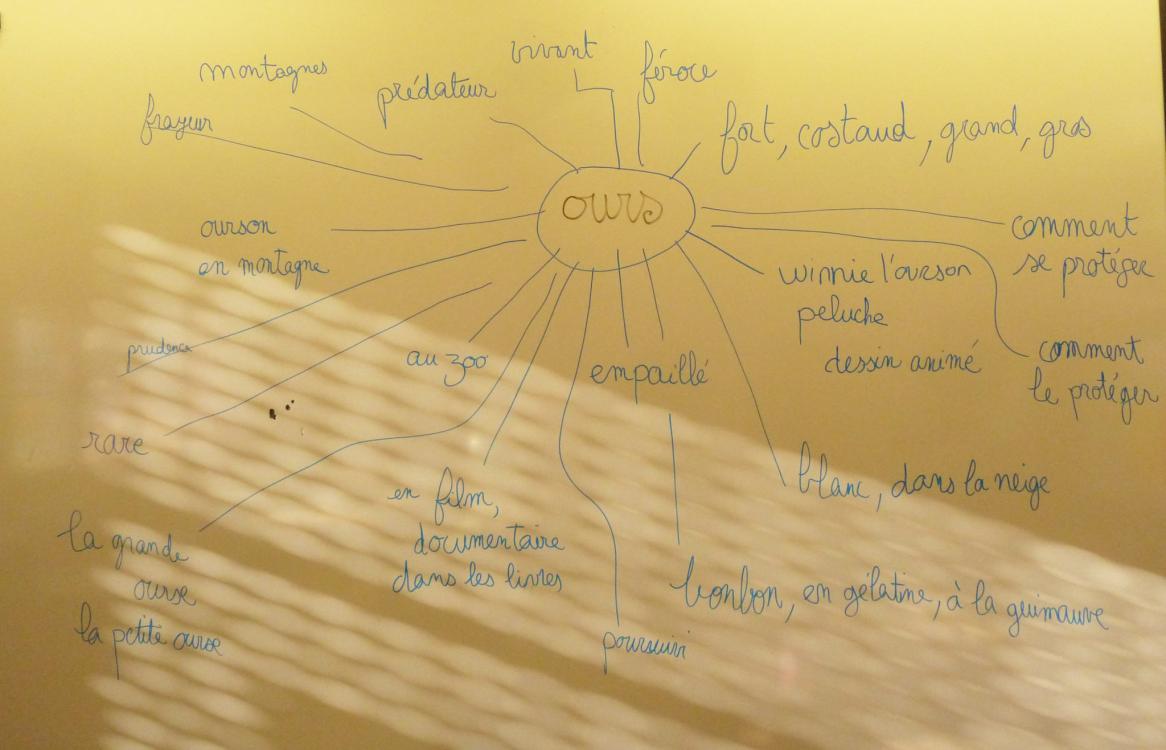 vivant
féroce
montagnes
prédateur
frayeur
fort, costaud, grand, gros
ours
comment
se protéger
ourson
en montagne
winnie l'ourson
peluche
dessin animé
comment
le protéger
prudence
au zoo
empaillé
rare
blanc, dans la neige
en film,
documentaire
dans les livres
la grande
ourse
la petite ourse
bonbon, en gélatine, à la guimauve
poursuivi